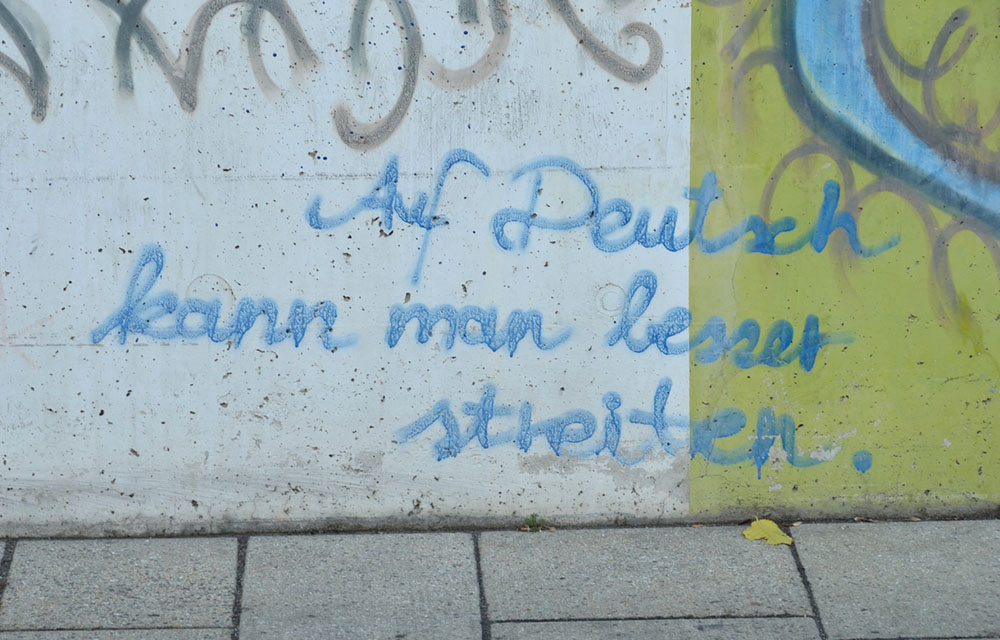 Auf Deutsch
kann man besser
streiten.